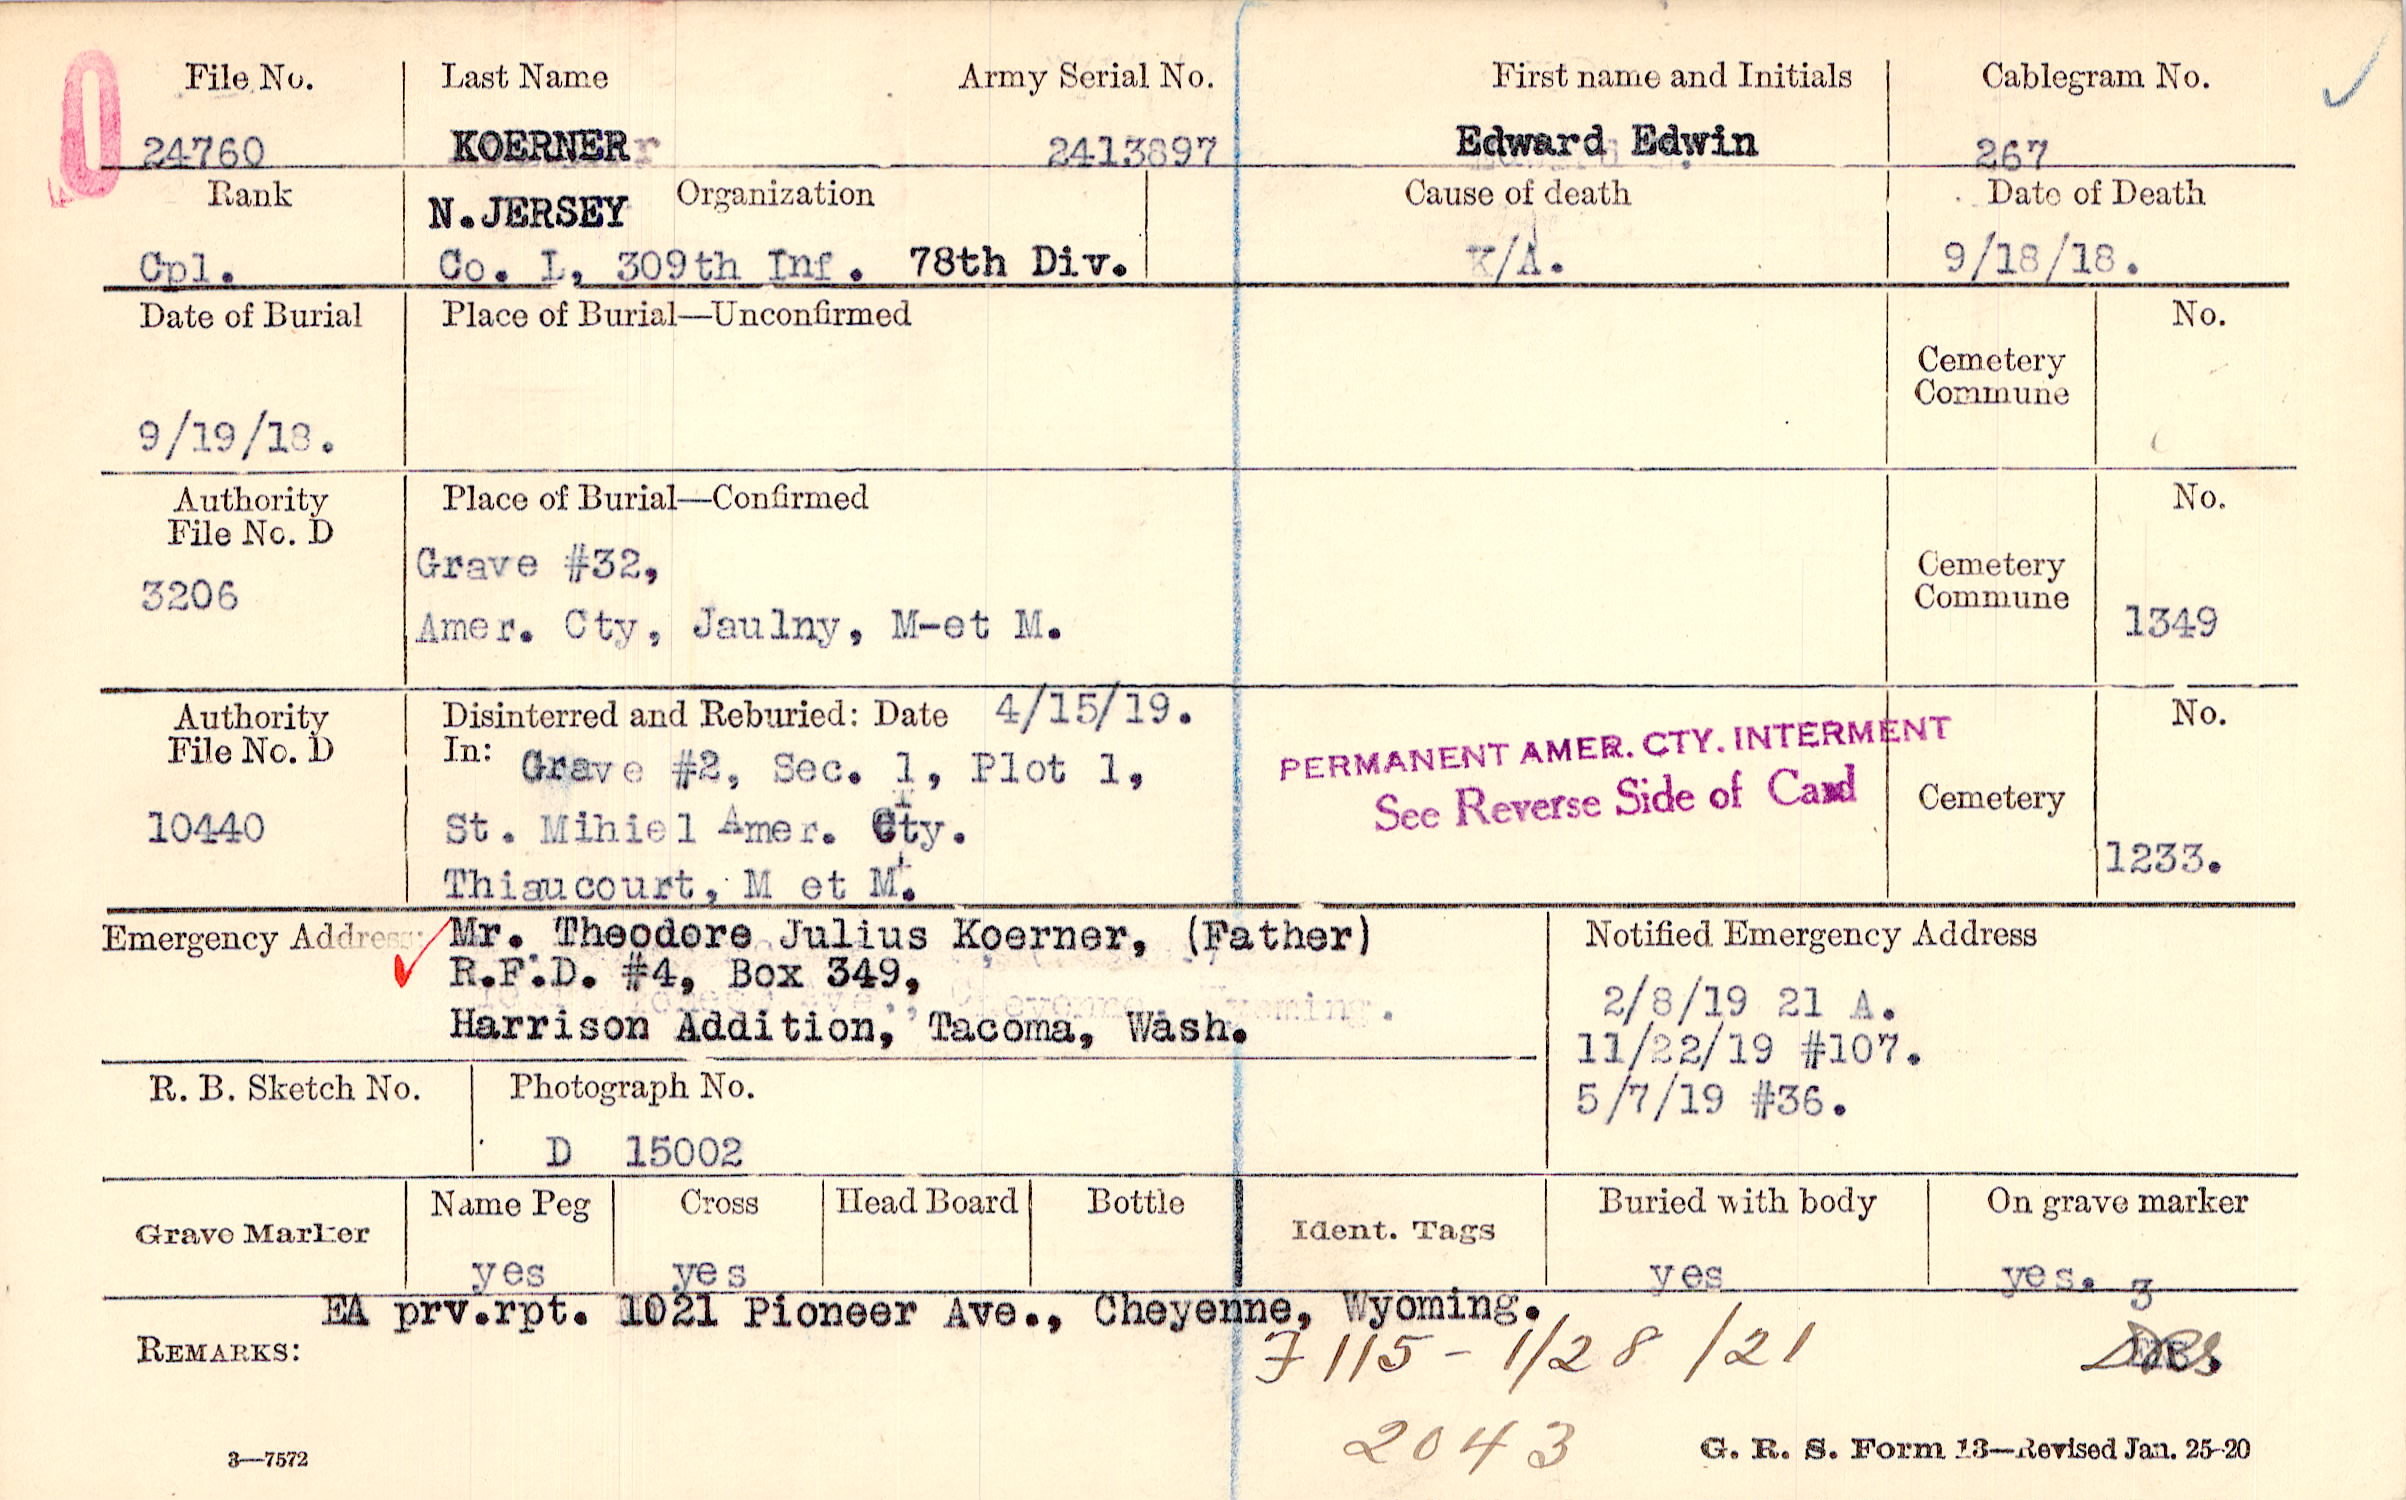 File No. Last Name Army Serial No. First name and Initials Cablegram No.
24760 KOERNER 2413897 Edward Edwin 267
Rank N.JERSEY Organization Cause of death Date of Death
Cpl. Co. L, 309th Inf. 78th Div. K/A. 9/18/18.
Date of Burial Place of Burial—Unconfirmed No.
Cemetery
Commune
9/19/18.
Authority Place of Burial—Confirmed No.
File No. D
Grave #32, Cemetery
3206 Commune
Amer. Cty, Jaulny, M-et M. 1349
Authority Disinterred and Reburied: Date 4/15/19. No.
File No. D In: Grave #2, Sec. 1, Plot 1,
PERMANENT AMER. CTY. INTERMENT
See Reverse Side of Card Cemetery
10440 St. Mihiel Amer. Cty.
1233.
Thiaucourt, M et M.
Emergency Address: Mr. Theodore Julius Koerner, (Father) Notified Emergency Address
R.F.D. #4, Box 349,
2/8/19 21 A.
Harrison Addition, Tacoma, Wash.
11/22/19 #107.
R. B. Sketch No. Photograph No. 5/7/19 #36.
D 15002
Grave Marker Name Peg Cross Head Board Bottle Ident. Tags Buried with body On grave marker
yes yes yes yes. 3
EA prv.rpt. 1021 Pioneer Ave., Cheyenne, Wyoming.
REMARKS: 7115 - 1/28/21
2043
3—7572 G. R. S. Form 13—Revised Jan. 25-20